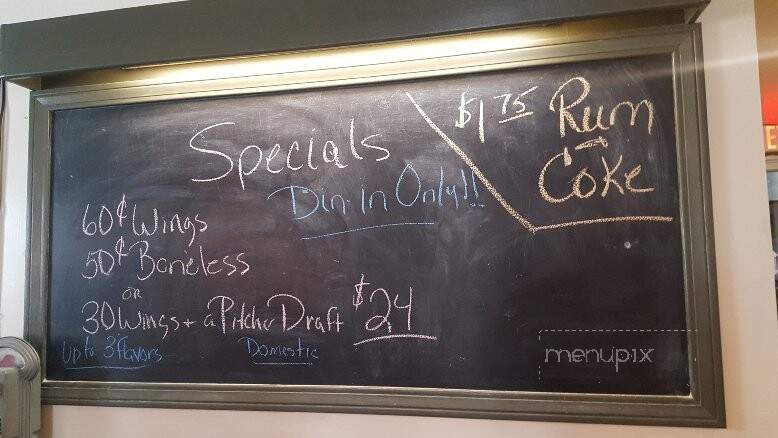 Specials
Din-in Only!!
$1.75 Rum
&
Coke
60¢ Wings
50¢ Boneless
or
30 Wings + a Pitcher Draft $24
Up to 3 flavors
Domestic
menupix
E